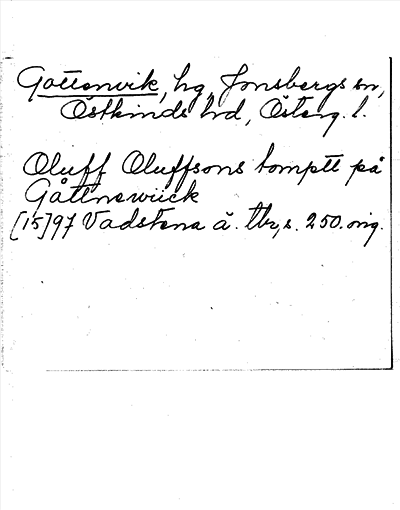 Gottenvik, hg, Jonsbergs sn,
Östkinds hd, Österg. l.
Oluff Oluffsons tomptt på
Gåttnewiick
[15]97 Vadstena ä. tbr, s. 250. orig.